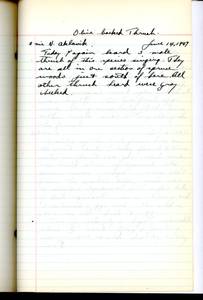 Olive backed Thrush.
1 mi N. Aklavik. June 14, 1947
Today I again heard 3 male
thrush of this species singing. They
are all in one section of spruce
woods just south of here. All
other thrush heard were gray
cheeked.